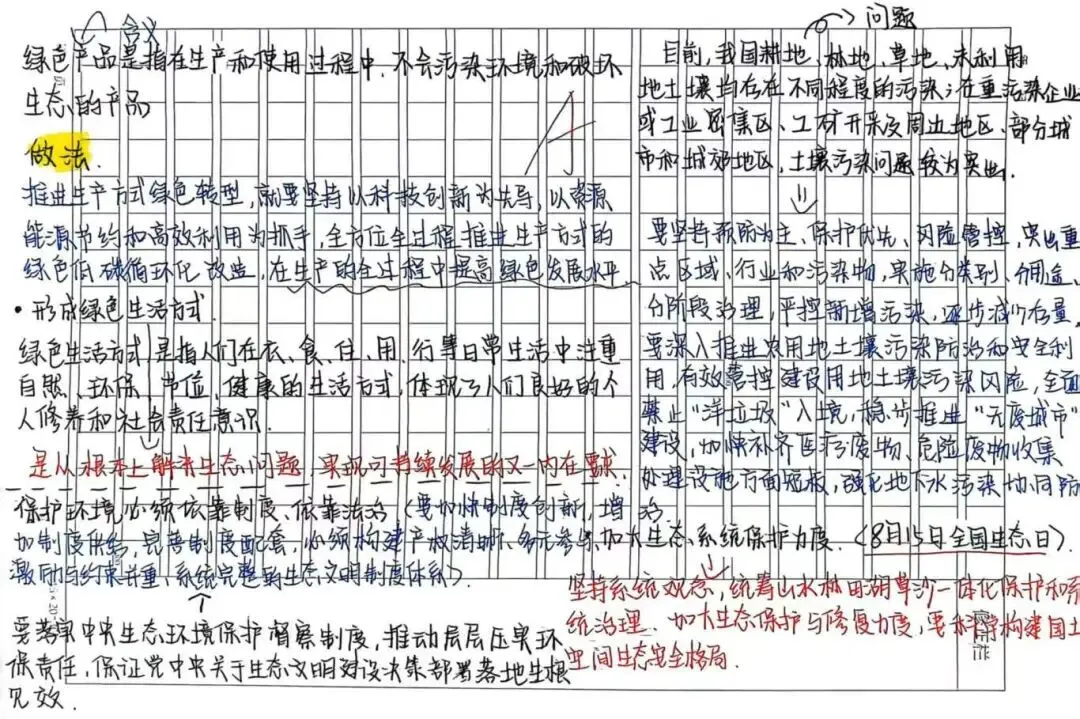 含义
绿色产品是指在生产和使用过程中,不会污染环境和破坏
生态的产品
做法.
推进生产方式绿色转型,就要坚持以科技创新为先导,以资源
能源节约和高效利用为抓手,全方位全过程推进生产方式的
绿色低碳循环化改造,在生产的全过程中提高绿色发展水平
·形成绿色生活方式.
绿色生活方式是指人们在衣、食、住、用、行等日常生活中注重
自然、环保、节俭、健康的生活方式,体现了人们良好的个
人修养和社会责任意识.
是从根本上解决生态问题,实现可持续发展的又一内在要求.
保护环境必须依靠制度、依靠法治(要加快制度创新,增
加制度供给,完善制度配套,必须构建产权清晰、多元参与、
激励与约束并重、系统完整的生态文明制度体系).
要落实中央生态环境保护督察制度,推动层层压实环
保责任,保证党中央关于生态文明建设决策部署落地生根
见效.
问题
目前,我国耕地、林地、草地、未利用
地土壤均存在不同程度的污染;在重污染企业
或工业密集区、工矿开采及周边地区、部分城
市和城郊地区,土壤污染问题较为突出.
要坚持预防为主、保护优先、风险管控,突出重
点区域、行业和污染物,实施分类别、分用途、
分阶段治理,严控新增污染,逐步减少存量,
要深入推进农用地土壤污染防治和安全利
用,有效管控建设用地土壤污染风险,全面
禁止“洋垃圾”入境,稳步推进“无废城市”
建设,加快补齐医疗废物、危险废物收集
处理设施方面短板,强化地下水污染协同防
治.
加大生态系统保护力度.(8月15日全国生态日)
坚持系统观念,统筹山水林田湖草沙一体化保护和系
统治理.加大生态保护与修复力度,要科学构建国土
空间生态安全格局.